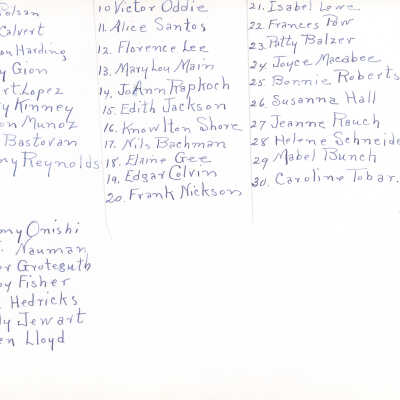 Polson
Calvert
on Harding
y Gion
rt Lopez
y Kinney
on Munoz
Bastovan
ny Reynolds
my Onishi
Nauman
or Groteguth
y Fisher
Hedricks
ly Jewart
en Lloyd
10 Victor Oddie
11. Alice Santos
12. Florence Lee
13. Mary Lou Main
14. JoAnn Rapkoch
15. Edith Jackson
16. Knowlton Shore
17. Nils Bachman
18. Elaine Gee
19. Edgar Colvin
20. Frank Nickson
21. Isabel Lowe
22. Frances Pow
23. Patty Balzer
24 Joyce Macabee
25 Bonnie Roberts
26. Susanna Hall
27 Jeanne Rauch
28 Helene Schneide
29 Mabel Bunch
30. Caroline Tobar.